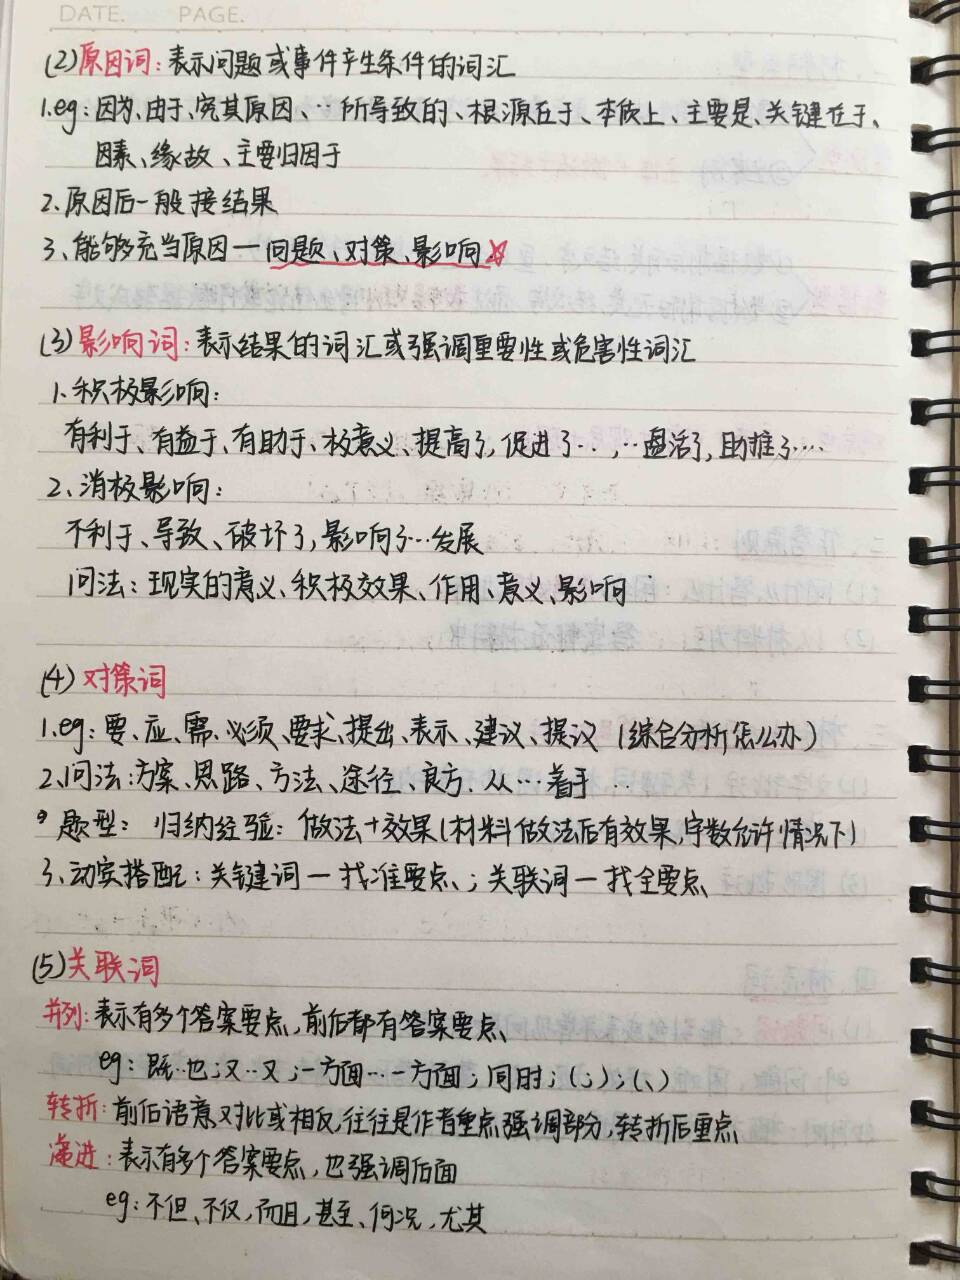 DATE. PAGE.
(2)原因词:表示问题或事件产生条件的词汇
1.eg:因为、由于、究其原因、…所导致的、根源在于、本质上、主要是、关键在于、
因素、缘故、主要归因于
2.原因后一般接结果
3、能够充当原因—问题、对策、影响☆
(3)影响词:表示结果的词汇或强调重要性或危害性词汇
1.积极影响:
有利于、有益于、有助于、极意义、提高了,促进了…,…盘活了,助推了…
2、消极影响:
不利于、导致、破坏了,影响了…发展
问法:现实的意义、积极效果、作用、意义、影响
(4)对策词
1.eg:要、应、需、必须、要求、提出、表示、建议、提议(综合分析怎么办)
2.问法:方案、思路、方法、途径、良方.从…着手…
题型:归纳经验:做法+效果(材料做法后有效果,字数允许情况下)
3.动宾搭配:关键词—找准要点、;关联词—找全要点
(5)关联词
并列:表示有多个答案要点,前后都有答案要点、
eg:既…也;又…又;一方面…一方面;同时;(;);(、)
转折:前后语意对比或相反,往往是作者重点强调部分,转折后重点
递进:表示有多个答案要点,也强调后面
eg:不但、不仅,而且,甚至、何况,尤其